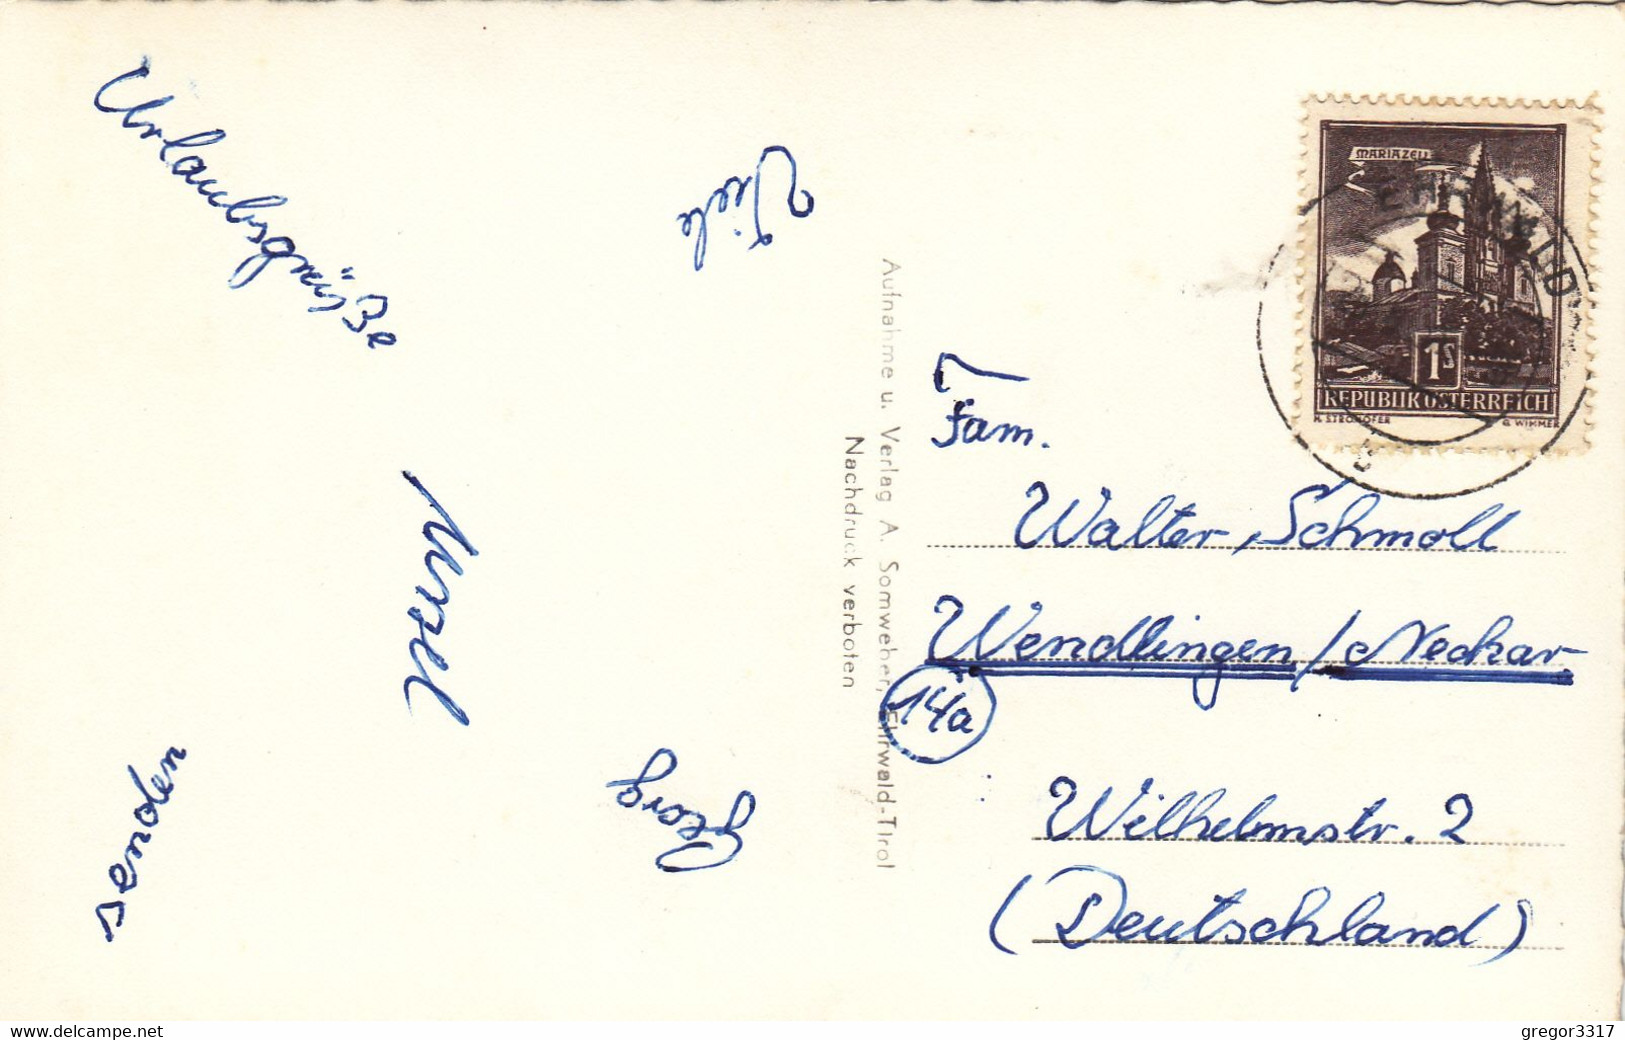 Viele
Urlaubsgrüße
senden
Ursel
Georg
Aufnahme u. Verlag A. Somweber, Ehrwald-Tirol
Nachdruck verboten
MARIAZELL
EHRWALD
1S
REPUBLIK ÖSTERREICH
G. WIMMER
Fam.
Walter Schmoll
Wendlingen/Neckar
14a
Wilhelmstr. 2
(Deutschland)
www.delcampe.net
gregor3317